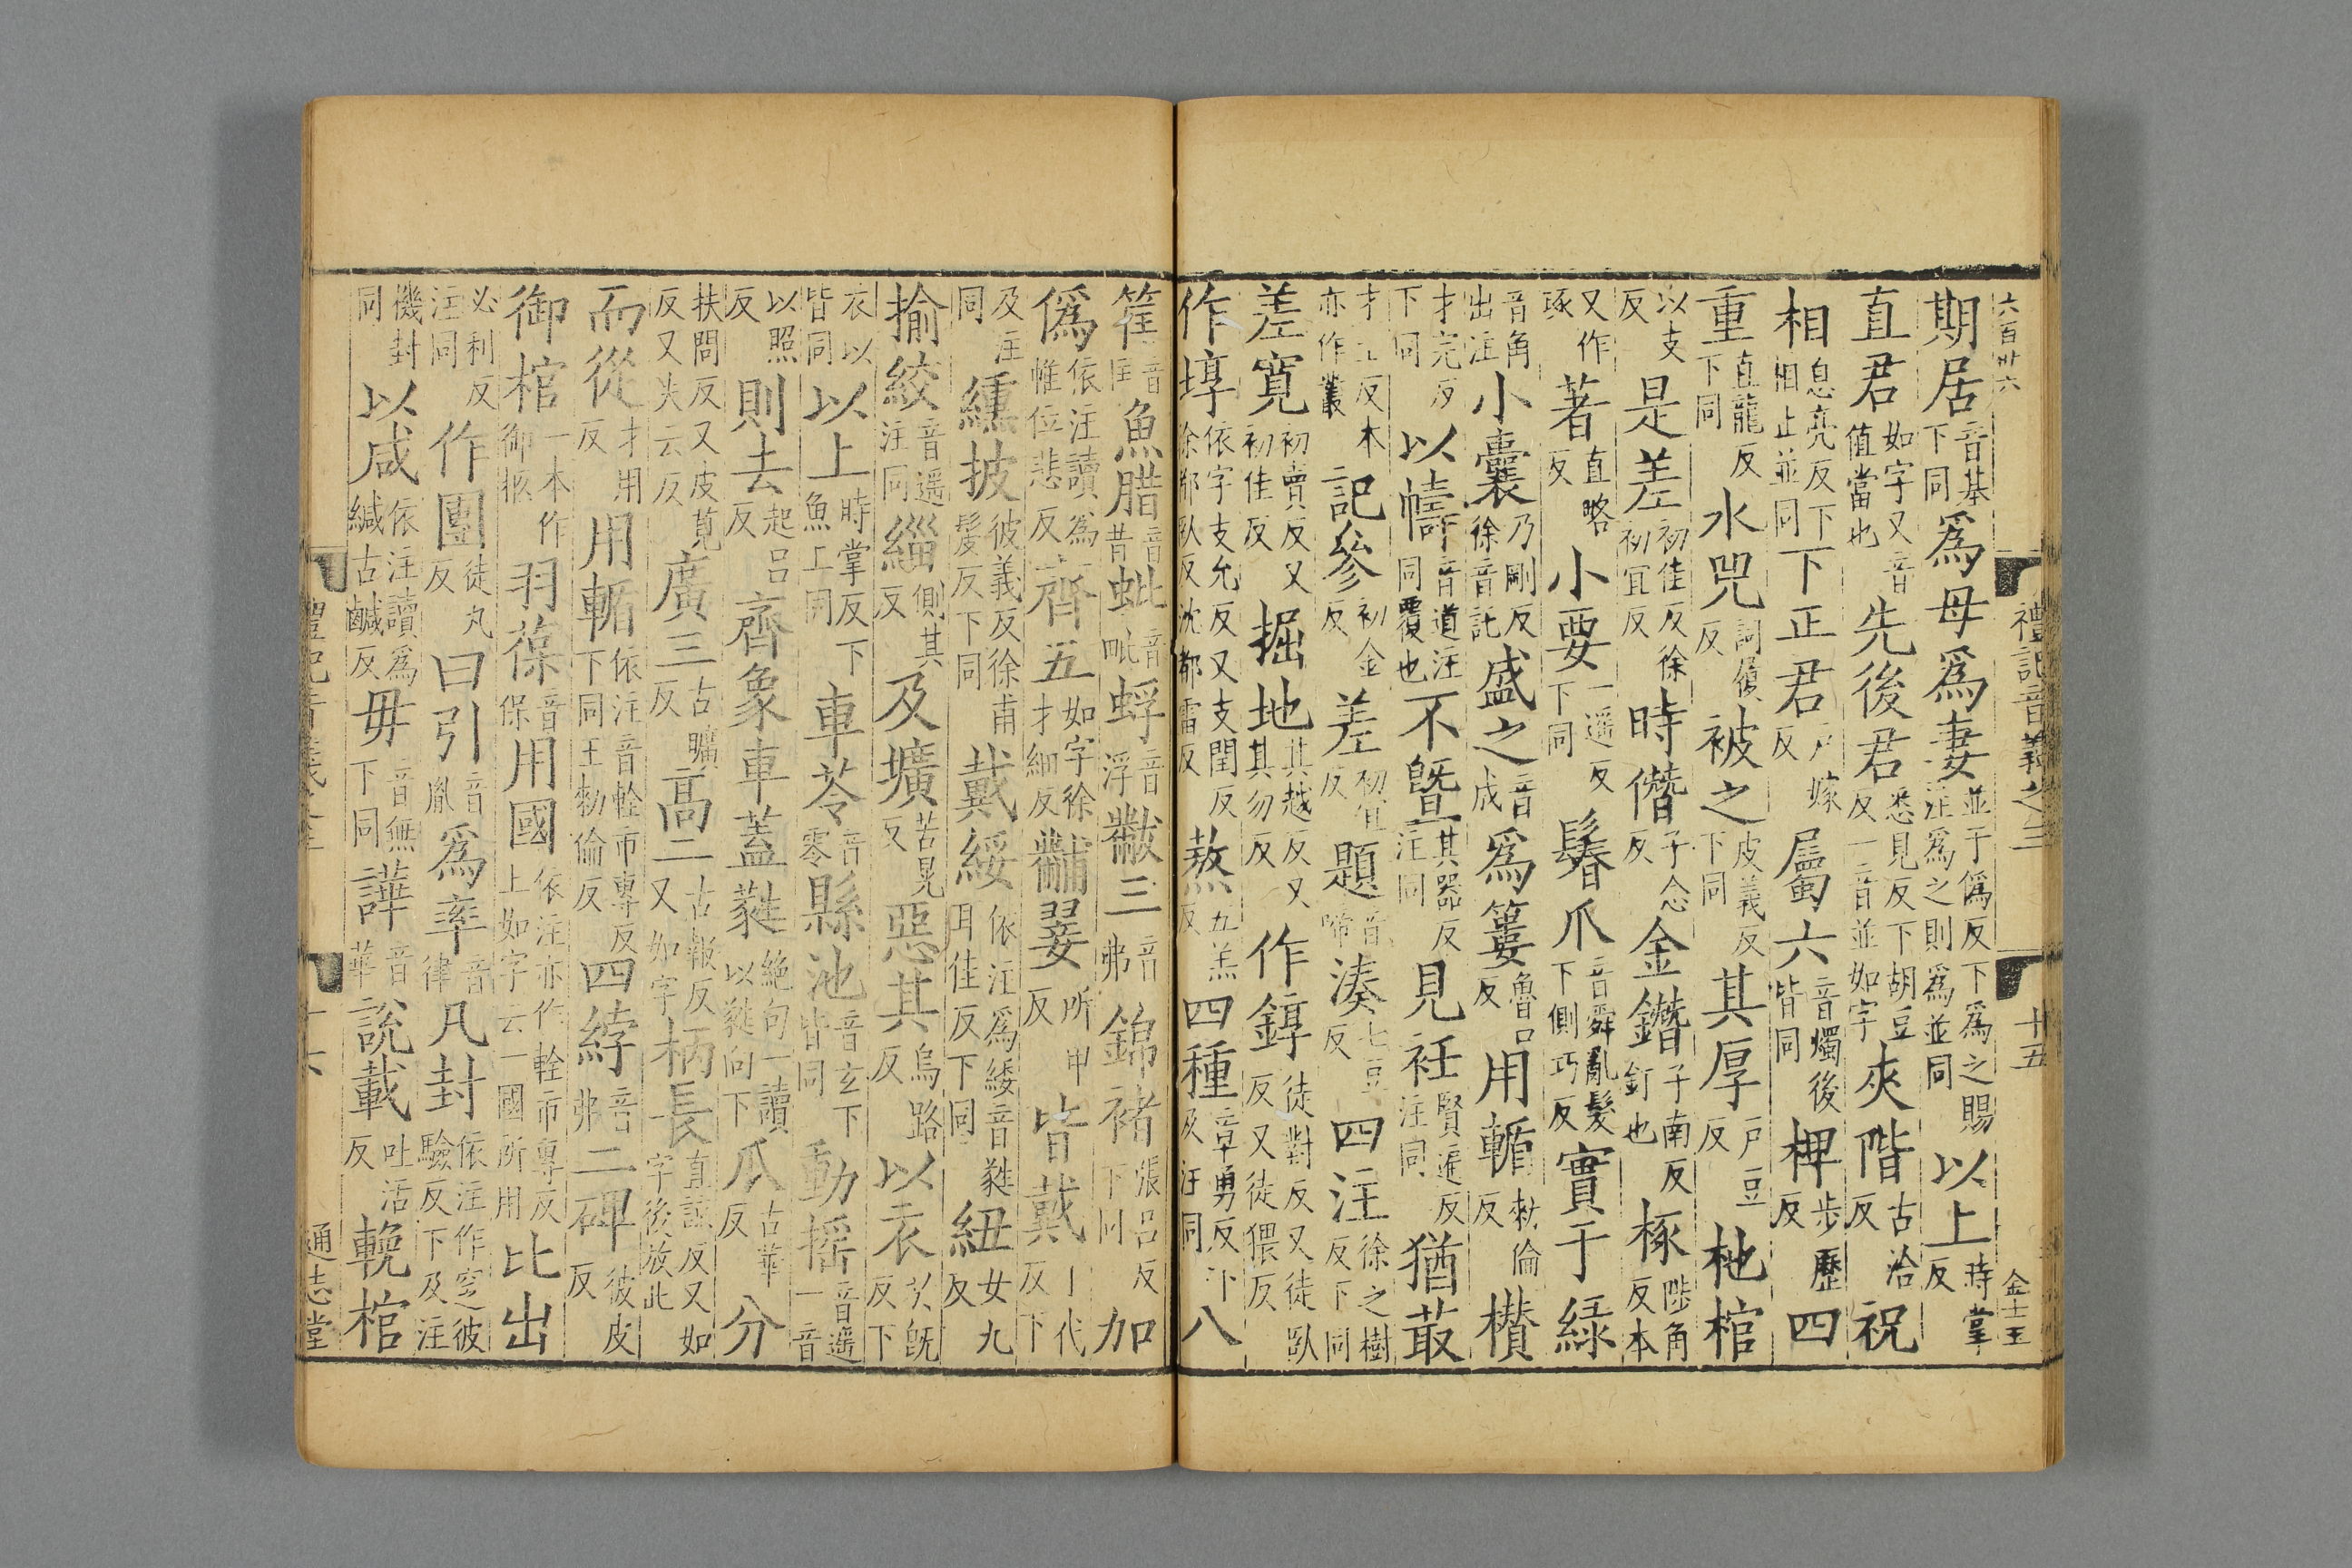 六百卅六
禮記音義之三
十五
金士玉
期居音基下同爲母爲妻並于僞反下爲之賜注爲之則爲並同以上時掌反
直君如字又音值當也先後君悉見反下胡豆反一音並如字夾階古洽反祝
相息亮反下相止並同下正君戸嫁反屬六音燭後皆同椑步歷反四
重直龍反下同水兕詞履反被之皮義反下同其厚戸豆反杝棺
以支反是差初佳反徐初宜反時僭子念反金鐕子南反釘也椓陟角反本
又作琢著直略反小要一遥反下同鬊爪音舜亂髮下側巧反實于緑
音角出注小囊乃剛反徐音託盛之音成爲簍魯口反用輴敕倫反欑
才完反下同以幬音道注同覆也不曁其器反注同見衽賢遍反注同猶菆
才工反木亦作叢記參初金反差初宜反題音啼湊七豆反四注徐之樹反下同
差寛初賣反又初佳反掘地其越反又其勿反作錞徒對反又徒臥反又徒猥反
作埻依字支允反又支閏反徐都臥反沈都雷反熬五羔反四種章勇反下及注同八
筐音匡魚腊音昔蚍音毗蜉音浮黻三音弗錦褚張呂反下同加
僞依注讀爲帷位悲反齊五如字徐才細反黼翣所甲反皆戴丁代反下
及注同纁披彼義反徐甫髲反下同戴綏依注爲緌音蕤耳佳反下同紐女九反
揄絞音遥注同緇側其反及壙苦晃反惡其烏路反以衣於旣反下
衣以皆同以上時掌反下魚上同車苓音零縣池音玄下皆同動揺音遥一音
以照反則去起呂反齊象車蓋蕤絶句一讀以蕤向下瓜古華反分
扶問反又皮莧反又夫云反廣三古曠反高二古報反又如字柄長直諒反又如字後放此
而從才用反用輴依注音輇市專反下同王勑倫反四綍音弗二碑彼皮反
御棺一本作御柩羽葆音保用國依注亦作輇市專反上如字云一國所用比出
必利反注同作團徒丸反曰引音胤爲率音律凡封依注作窆彼驗反下及注
機封同以咸依注讀爲緘古鹹反毋音無下同譁音華說載吐活反輓棺
禮記音義之三
十六
通志堂